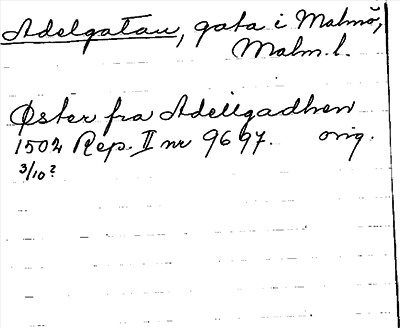 Adelgatan, gata i Malmö,
Malm. l.
Øster fra Adellgadhen
1502 Rep. II nr 9697. orig.
3/10?